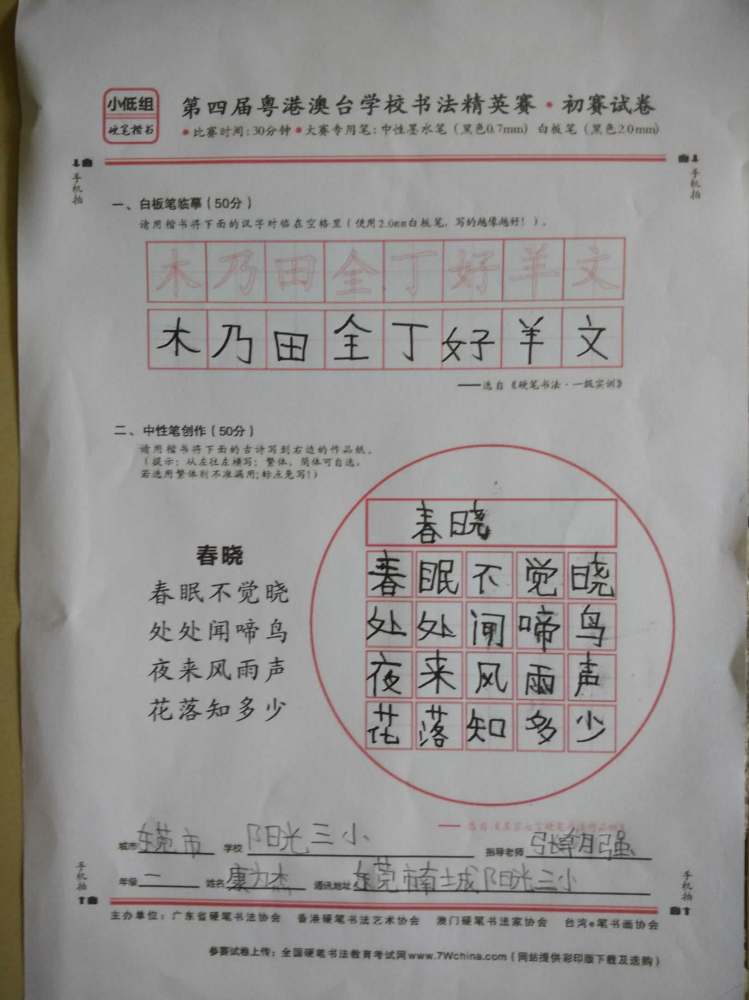 小低组
硬笔楷书
第四届粤港澳台学校书法精英赛·初赛试卷
•比赛时间:30分钟•大赛专用笔:中性墨水笔(黑色0.7mm) 白板笔(黑色2.0mm)
手机拍
手机拍
一、白板笔临摹(50分)
请用楷书将下面的汉字对临在空格里(使用2.0mm白板笔,写的越像越好!)。
木乃田全丁好羊文
木乃田全丁好羊文
——选自《硬笔书法·一级实训》
二、中性笔创作(50分)
请用楷书将下面的古诗写到右边的作品纸。
(提示:从左往左横写;繁体、简体可自选,
若选用繁体则不准漏用;标点免写!)
春晓
春眠不觉晓
处处闻啼鸟
夜来风雨声
花落知多少
春晓
春眠不觉晓
处处闻啼鸟
夜来风雨声
花落知多少
城市 东莞市 学校 阳光三小 指导老师
年级 一 姓名 康为杰 通讯地址 东莞市南城阳光三小
手机拍
手机拍
主办单位:广东省硬笔书法协会 香港硬笔书法艺术协会 澳门硬笔书法家协会 台湾e笔书画协会
参赛试卷上传:全国硬笔书法教育考试网www.7Wchina.com(网站提供彩印版下载及选购)